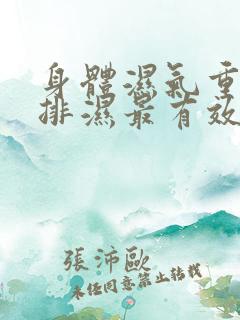 身體濕氣重
排濕最有效
張沛歐
未經同意禁止轉載